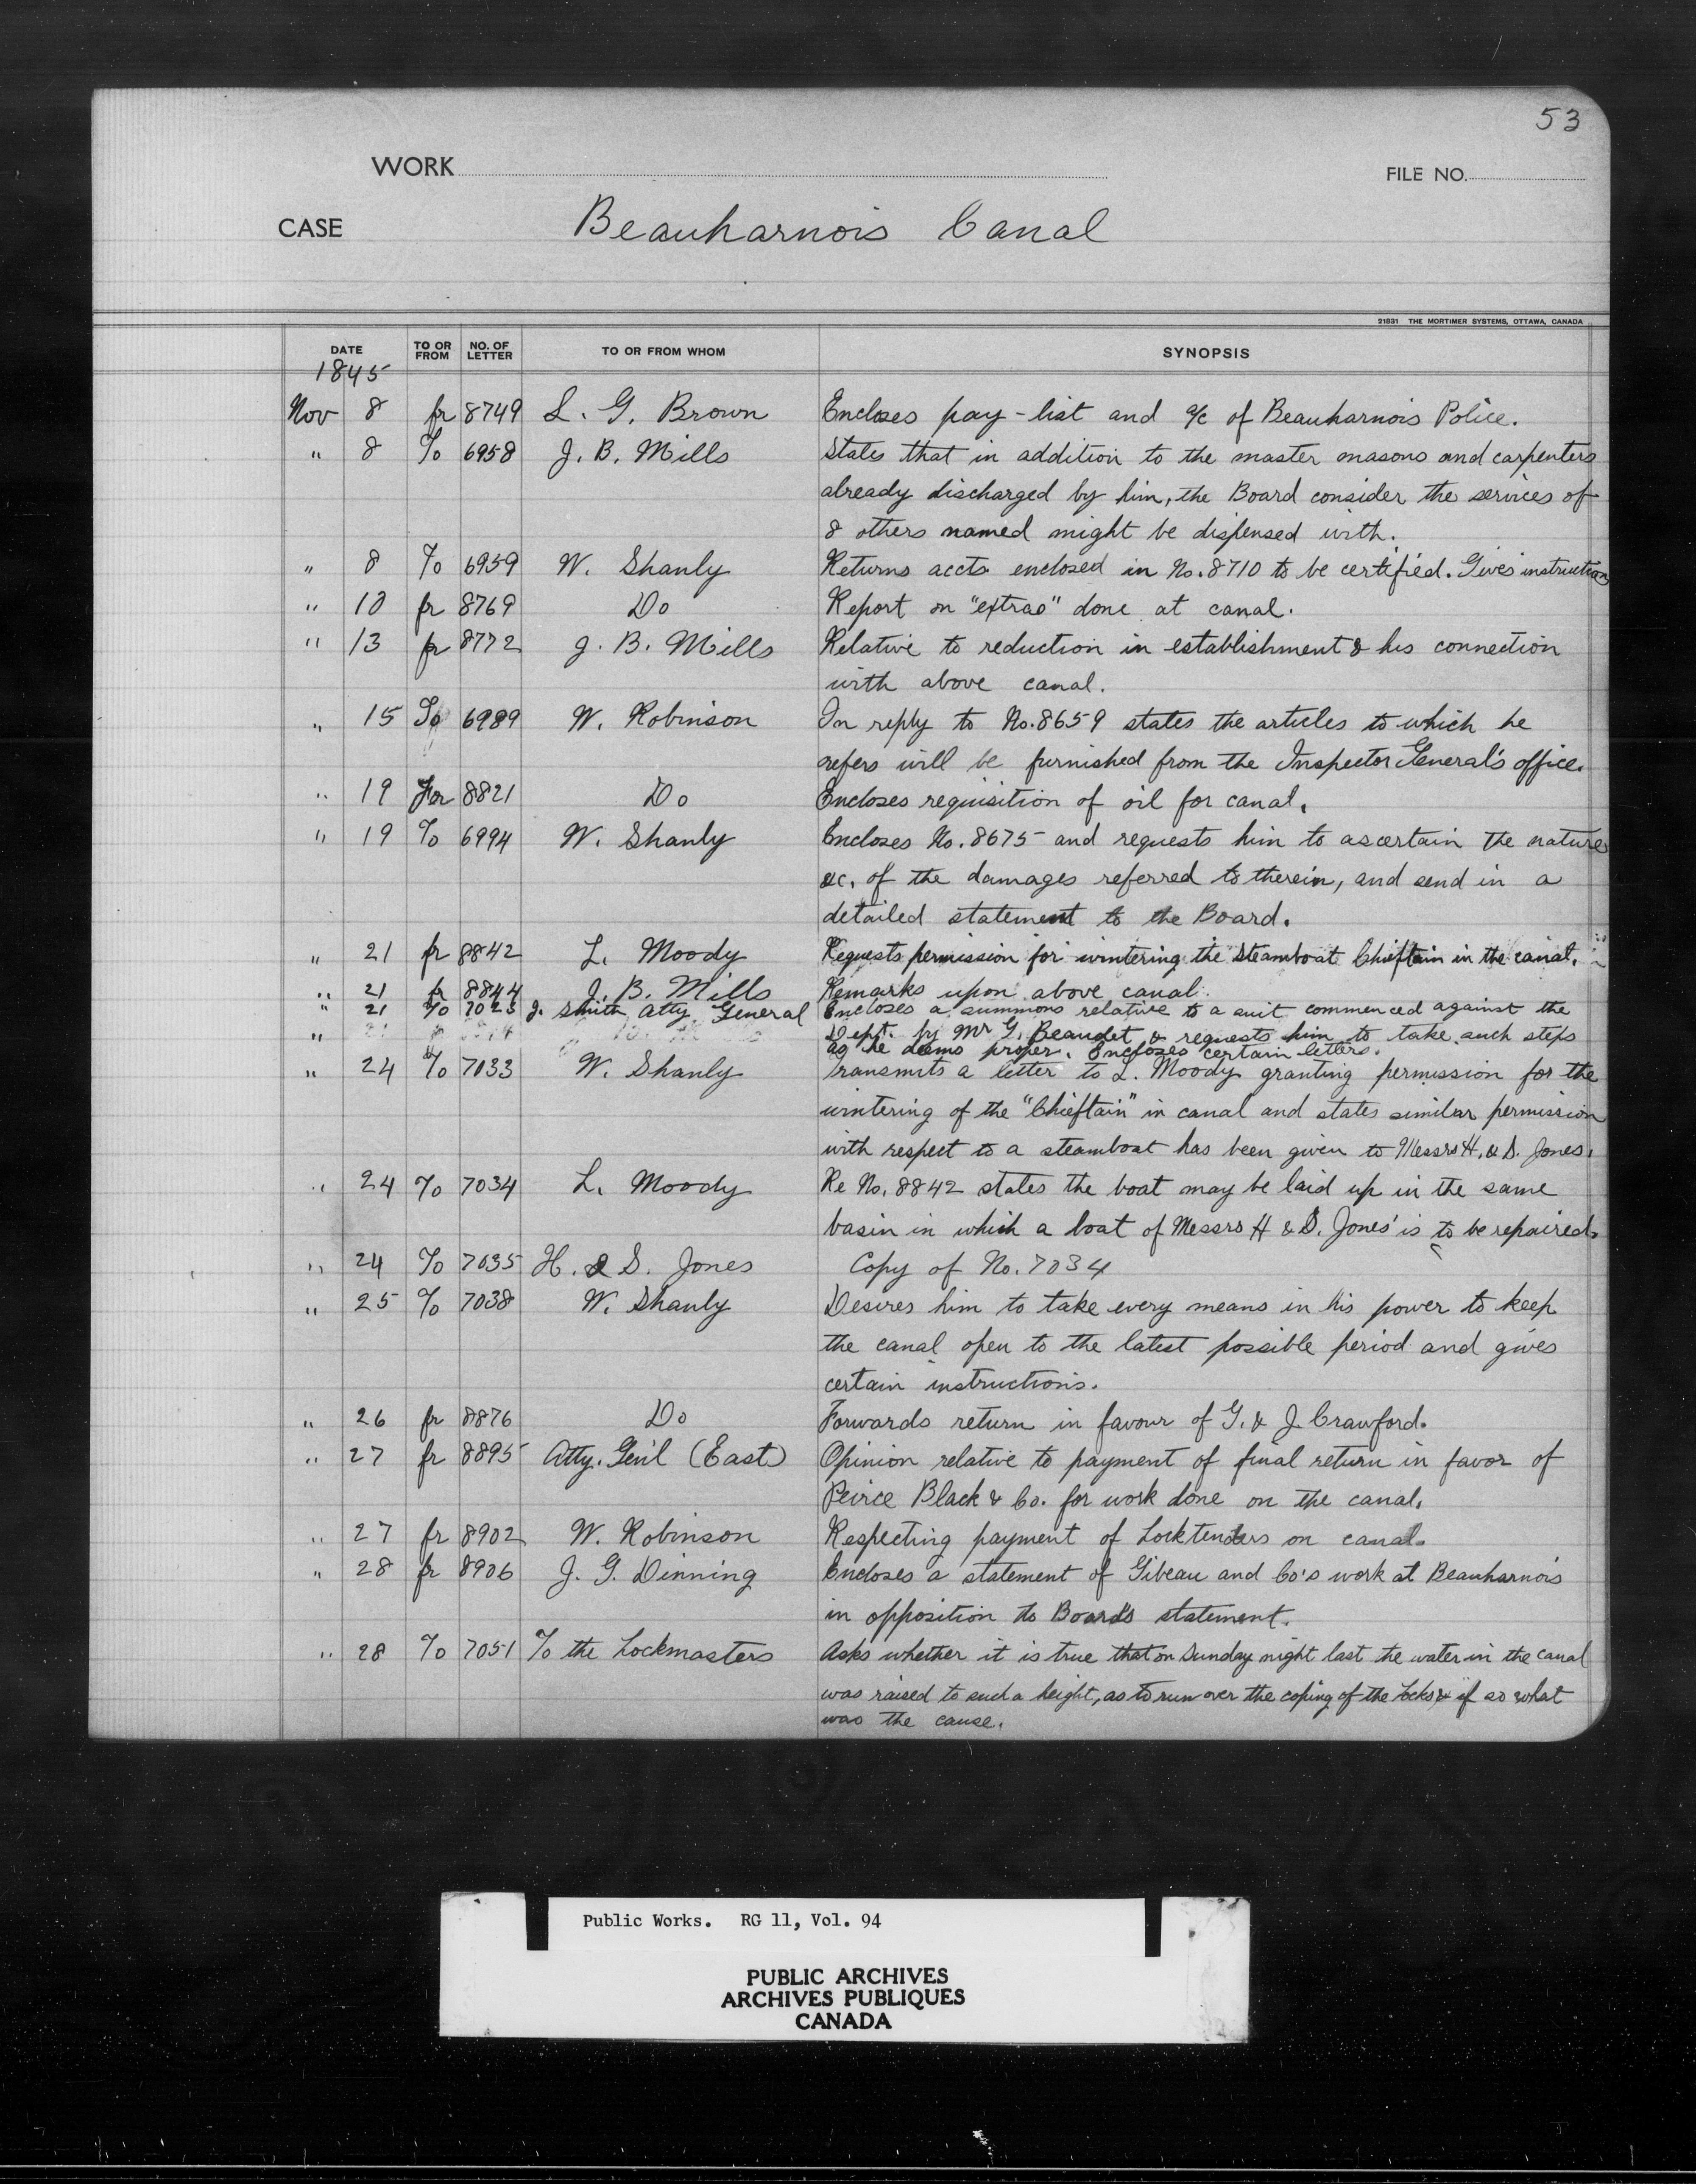 53
WORK
FILE NO.
CASE Beauharnois Canal
21831 THE MORTIMER SYSTEMS, OTTAWA, CANADA
DATE TO OR FROM NO. OF LETTER TO OR FROM WHOM SYNOPSIS
1845
Nov 8 fr 8749 L. G. Brown Encloses pay-list and a/c of Beauharnois Police.
" 8 To 6958 J. B. Mills States that in addition to the master masons and carpenters
already discharged by him, the Board consider the services of
8 others named might be dispensed with.
" 8 To 6959 W. Shanly Returns accts enclosed in No. 8710 to be certified. Gives instruction
" 10 fr 8769 Do Report on "extras" done at canal.
" 13 fr 8772 J. B. Mills Relative to reduction in establishment & his connection
with above canal.
" 15 To 6989 W. Robinson In reply to No. 8659 states the articles to which he
refers will be furnished from the Inspector General's office.
" 19 For 8821 Do Encloses requisition of oil for canal.
" 19 To 6994 W. Shanly Encloses No. 8675 and requests him to ascertain the nature
&c. of the damages referred to therein, and send in a
detailed statement to the Board.
" 21 fr 8842 L. Moody Requests permission for wintering the steamboat Chieftain in the canal.
" 21 fr 8844 J. B. Mills Remarks upon above canal.
" 21 To 7023 J. Smith Atty General Encloses a summons relative to a suit commenced against the
" Dept. by Mr G. Beaudet & requests him to take such steps
as he deems proper. Encloses certain letters.
" 24 To 7033 W. Shanly Transmits a letter to L. Moody granting permission for the
wintering of the "Chieftain" in canal and states similar permission
with respect to a steamboat has been given to Messrs H. & S. Jones.
" 24 To 7034 L. Moody Re No. 8842 states the boat may be laid up in the same
basin in which a boat of Messrs H & S. Jones' is to be repaired.
" 24 To 7035 H. & S. Jones Copy of No. 7034
" 25 To 7038 W. Shanly Desires him to take every means in his power to keep
the canal open to the latest possible period and gives
certain instructions.
" 26 fr 8876 Do Forwards return in favour of G. & J. Crawford.
" 27 fr 8895 Atty. Gen'l (East) Opinion relative to payment of final return in favor of
Peirce Black & Co. for work done on the canal.
" 27 fr 8902 W. Robinson Respecting payment of Locktenders on canal.
" 28 fr 8906 J. G. Dinning Encloses a statement of Gibeau and Co's work at Beauharnois
in opposition to Board's statement.
" 28 To 7051 To the Lockmasters Asks whether it is true that on Sunday night last the water in the canal
was raised to such a height, as to run over the coping of the locks & if so what
was the cause.
Public Works. RG 11, Vol. 94
PUBLIC ARCHIVES
ARCHIVES PUBLIQUES
CANADA